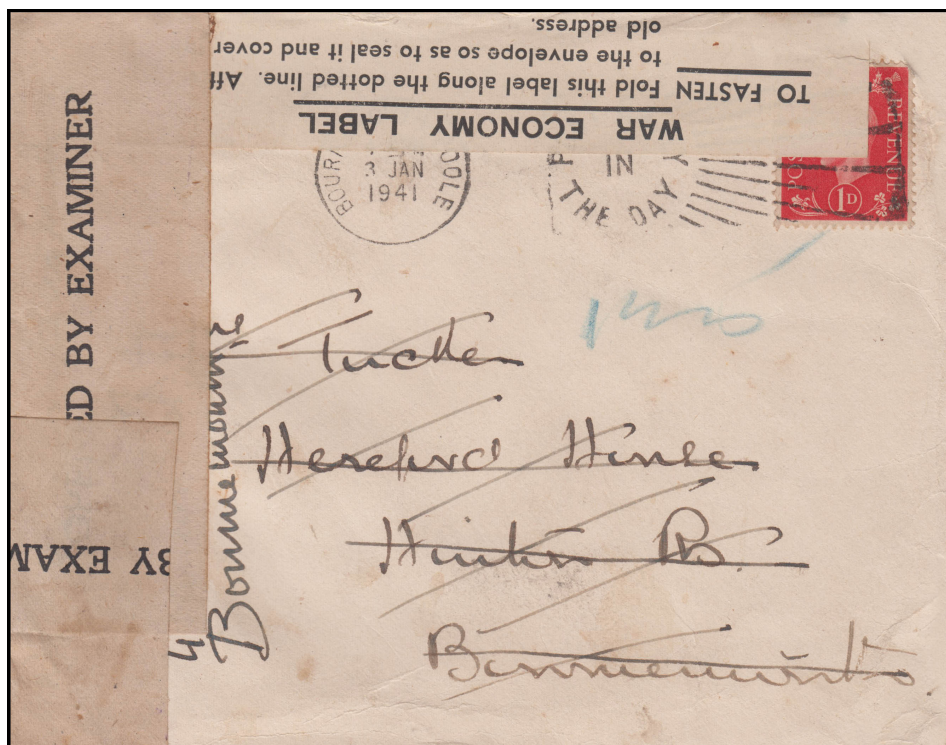 WAR ECONOMY LABEL
TO FASTEN Fold this label along the dotted line. Aff
to the envelope so as to seal it and cover
old address.
ED BY EXAMINER
BY EXAM
BOUR OOLE
3 JAN
1941
IN
THE DAY
POS REVENUE
1D
Tucker
Hereford House
Hinton Rd.
Bournemouth
Bournemouth
4